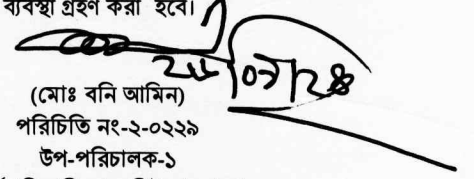 ব্যবস্থা গ্রহণ করা হবে।
(মোঃ বনি আমিন)
পরিচিতি নং-২-০২২৯
উপ-পরিচালক-১